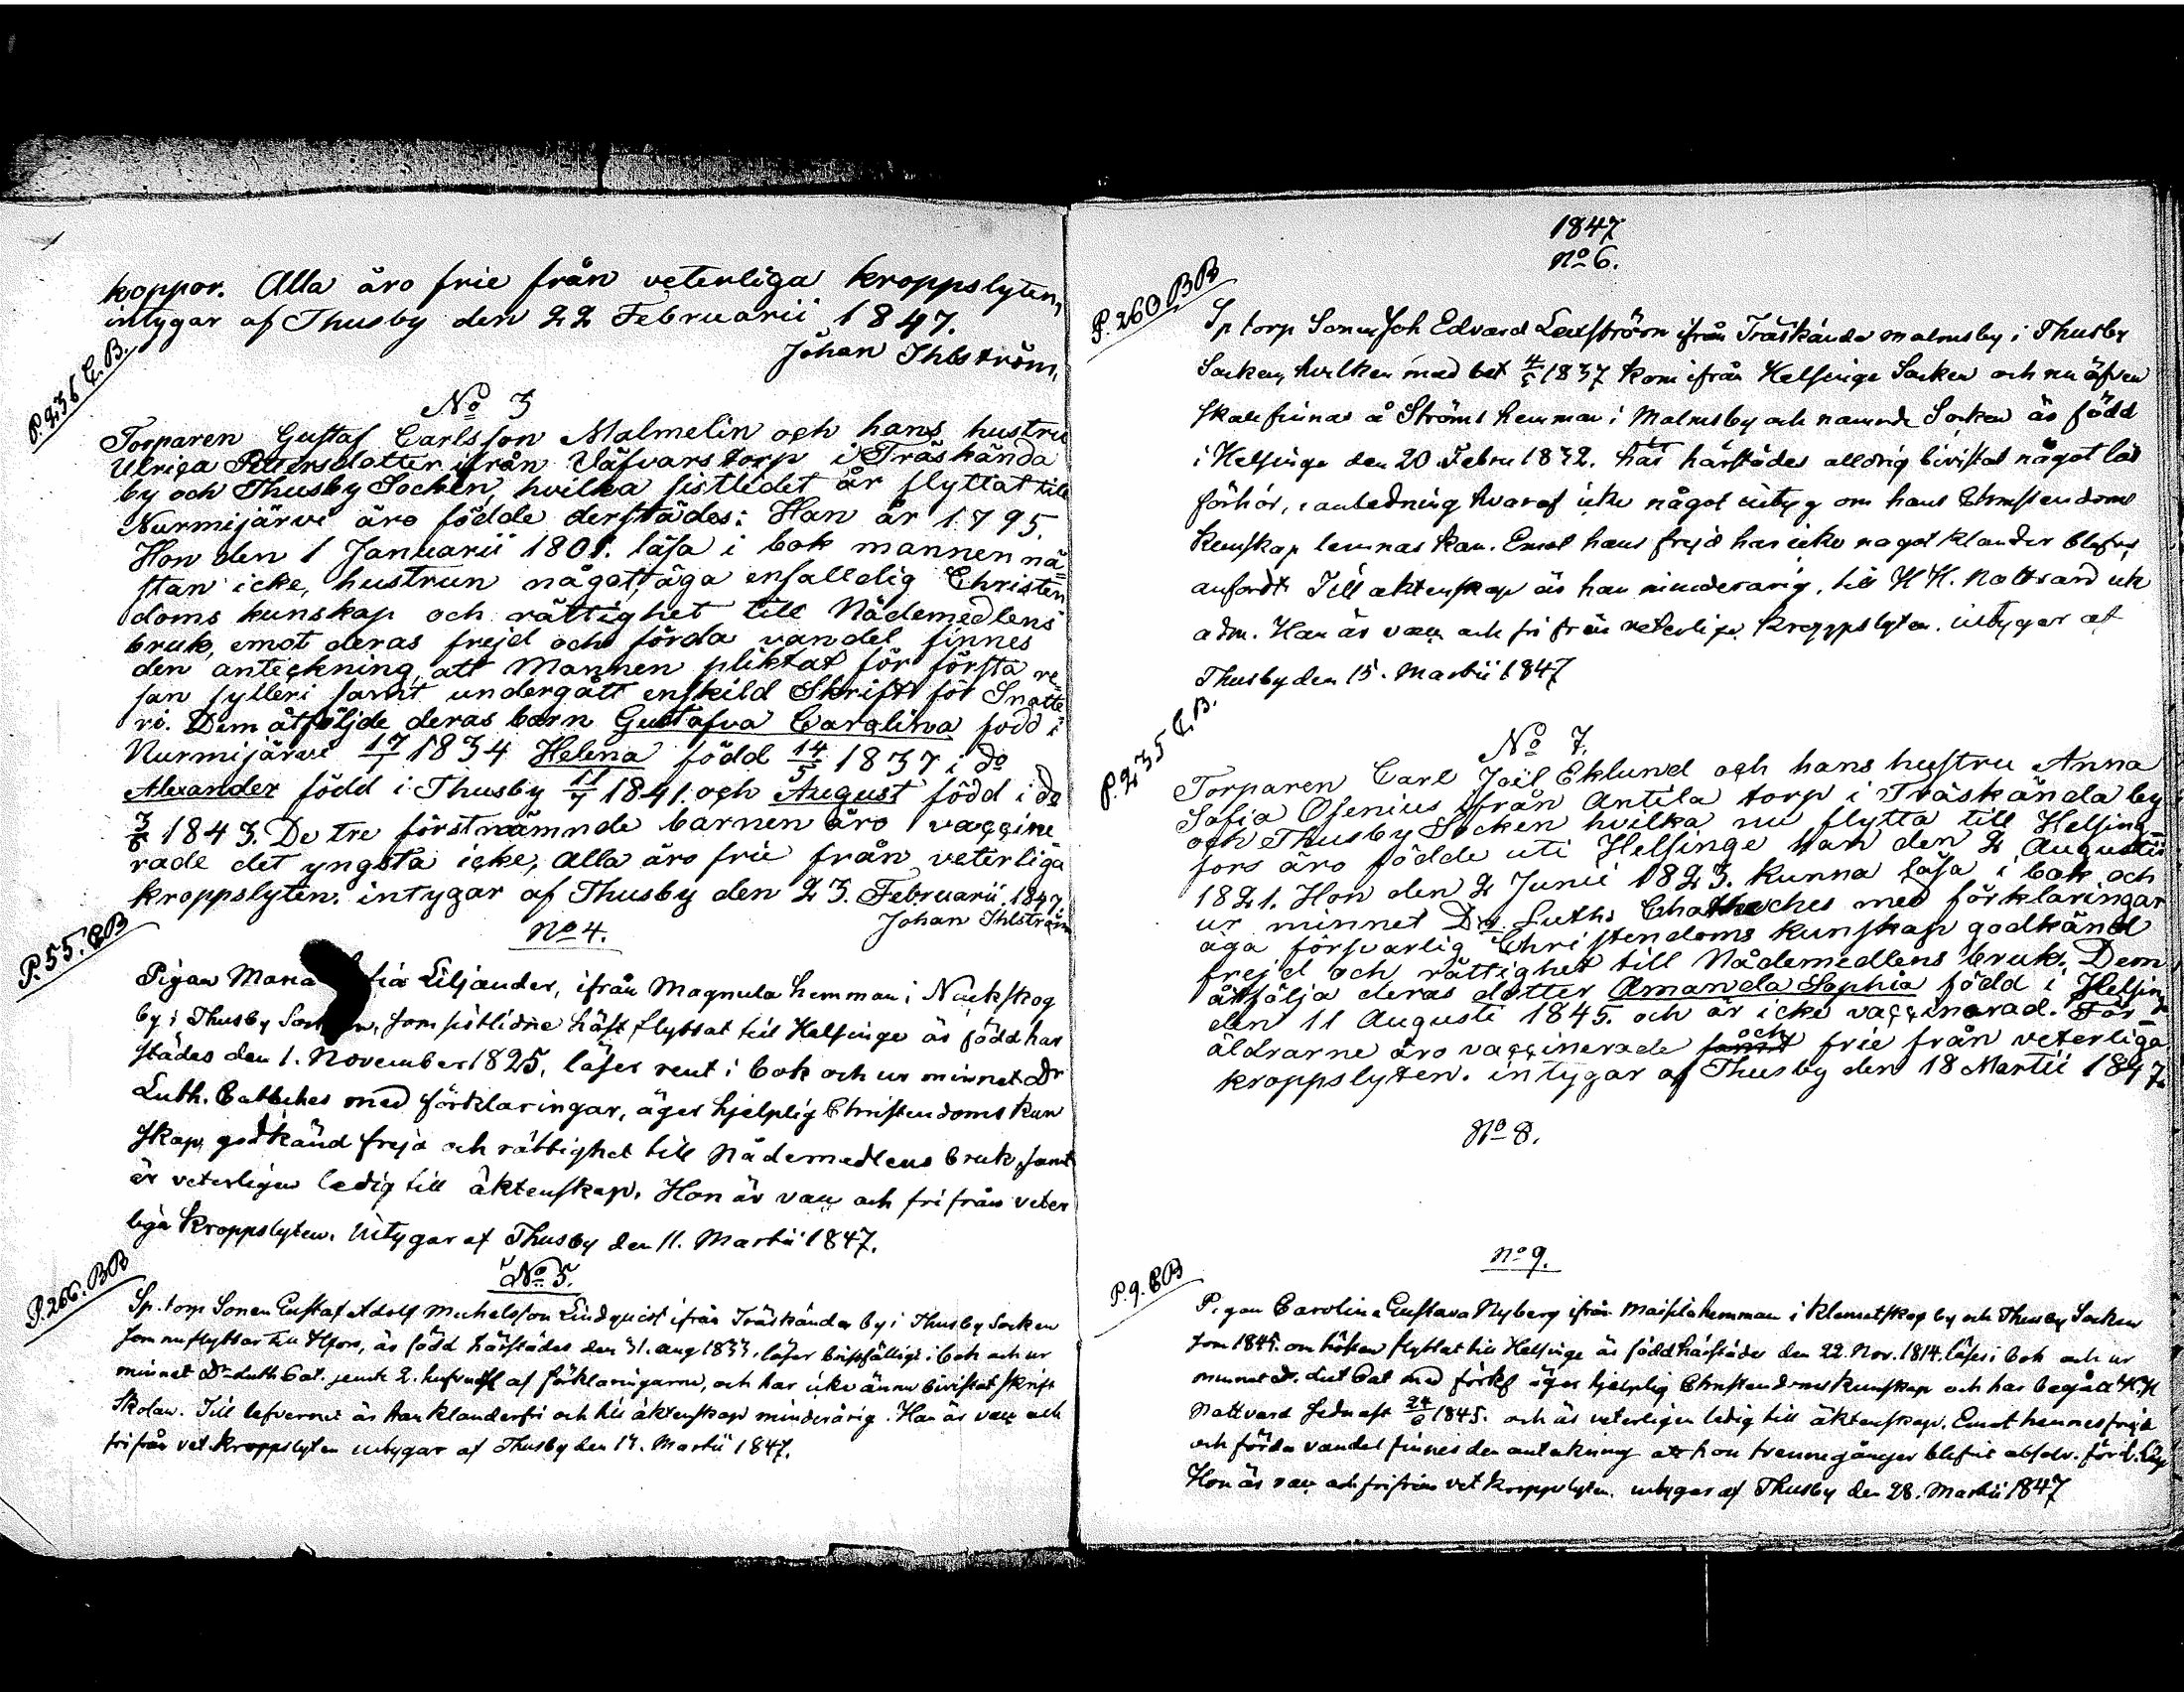 koppor. Alla äro frie från veterliga kroppslyten,
intygar af Thusby den 22 Februarii 1847.
Johan Ihlström.
P. 236 C.B.
No 3
Torparen Gustaf Carlsson Malmelin och hans hustru
Ulrica Petersdotter ifrån Väfvars torp i Träskända
by och Thusby Socken, hvilka sistledit år flyttat till
Nurmijärvi äro födde derstädes: Han år 1795.
Hon den 1 Januarii 1801. läsa i bok mannen nä=
stan icke, hustrun något, äga enfalldig Christen
doms kunskap och rättighet till Nådemedlens
bruk, emot deras frejd och förda vandel finnes
den anteckning, att Mannen pliktat för första re=
san fylleri samt undergått enskild Skrift för Snatte=
ri. Dem åtfölje deras barn Gustafva Carolina född i
Nurmijärvi 17/1 1834 Helena född 14/5 1837 i do
Alexander född i Thusby 11/7 1841. och August född i do
3/6 1843. De tre förstnämnde barnen äro vaccine
rade det yngsta icke, Alla äro frie från veterliga
kroppslyten. intygar af Thusby den 23. Februarii. 1847.
Johan Ihlström
P. 55. CB
No 4.
Pigan Maria Liljander, ifrån Magnula hemman i Nackskog
by i Thusby Socken, som sistlidne höst flyttat till Helsinge är född här
städes den 1. November 1825, läser rent i bok och ur minnet Dr
Luth. Catteches med förklaringar, äger hjelplig Christendoms kun
skap, godkänd frejd och rättighet till Nådemedlens bruk, samt
är veterligen ledig till äktenskap. Hon är vacc och fri från veter
liga kroppslyten. intygar af Thusby den 11. Martii 1847.
P. 266. BB
No 5.
Sp. torp Sonen Gustaf Adolf Michelsson Lindqvist ifrån Träskända by i Thusby Socken
som nu flyttar till Hfors, är född härstädes den 31. aug 1833, läser bristfälligt i bok och ur
minnet Dr Luth Cat. jemte 2. hufvust af förklaringarne, och har icke ännu bivistat Skrift
Skolan. Till lefvernet är han klanderfri och till äktenskap minderårig. Han är vacc och
fri från vet. kroppslyten intygar af Thusby den Martii 1847.
1847
No 6.
P. 260 BB
Sp torp Sonen Joh Edvard ifrån Träskända malmsby i Thusby
Socken, hvilken med bet 1837 kom ifrån Helsinge Socken och nu äfven
skall finnas å Ströms hemman i Malmsby och nämnde Socken är född
i Helsinge den 20 Febru 1832. har härstädes alldrig bivistat något läs
förhör, i anledning hvaraf icke något intyg om hans Christendoms
kunskap lemnas kan. Emot hans frejd har icke något klander blifvit
anfördt Till äktenskap är han minderårig, till H H. Nattvard icke
adm. Han är vacc och fri från veterliga kroppslyten. intygar af
Thusby den 15. Martii 1847
P. 235 C.B.
No 7.
Torparen Carl Joil Eklund och hans hustru Anna
Sofia Osenius ifrån Antila torp i Träskända by
och Thusby Socken hvilka nu flytta till Helsing=
fors äro födde uti Helsinge Han den 2 Augusti
1821. Hon den 2 Junii 1823. kunna läsa i bok och
ur minnet Dr. Luths Chatheches med förklaringar
äga försvarlig Christendoms kunskap godkänd
frejd och rättighet till Nådemedlens bruk. Dem
åtfölja deras dotter Amanda Sophia född i Helsin
den 11 Augusti 1845. och är icke vaccinerad. För=
äldrarne äro vaccinerade samt och frie från veterliga
kroppslyten. intygar af Thusby den 18 Martii 1847.
No 8.
No 9.
P. 9. CB
Pigan Carolina Gustava Nyberg ifrån hemman i Klemetskog by och Thusby Socken
som 1845. om hösten flyttat till Helsinge är född härstädes den 22. Nov. 1814. läser i bok och ur
minnet Dr. Lut Cat med förkl äger hjelplig Christendoms kunskap och har begått H. H
Nattvard sednast 24/6 1845. och är veterligen ledig till äktenskap. Emot hennes frejd
och förda vandel finnes den anteckning att hon trenne gånger blifvit absolv. för
Hon är vacc och fri från vet kroppslyten. intygar af Thusby den 28. Martii 1847